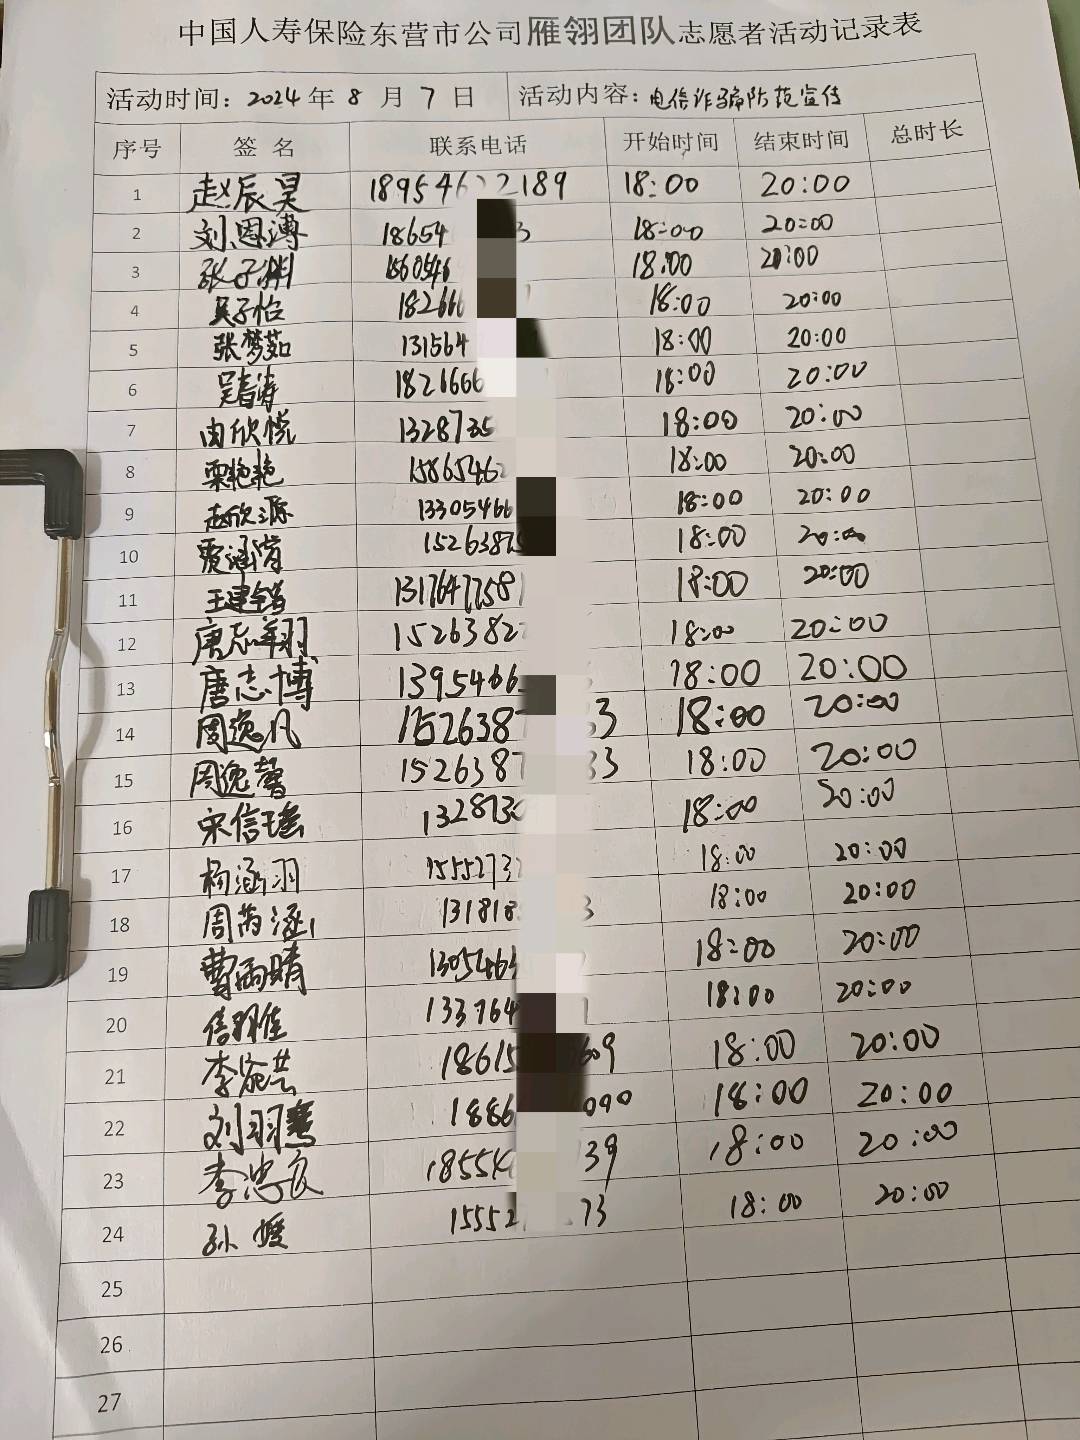 中国人寿保险东营市公司雁翎团队志愿者活动记录表
活动时间：2024年8月7日 活动内容：电信诈骗防范宣传
序号 签名 联系电话 开始时间 结束时间 总时长
1 赵辰昊 189546 2189 18:00 20:00
2 刘恩溥 18654 3 18:00 20:00
3 张子渊 1860546 18:00 20:00
4 吴子怡 182666 18:00 20:00
5 张梦茹 131564 18:00 20:00
6 吴春涛 1821666 18:00 20:00
7 由欣悦 1328735 18:00 20:00
8 栗艳艳 15865462 18:00 20:00
9 赵欣源 13305466 18:00 20:00
10 贾涵 15263875 18:00 20:00
11 王建 1317647758 18:00 20:00
12 唐志翔 15263827 18:00 20:00
13 唐志博 13954666 18:00 20:00
14 周逸凡 1526387 33 18:00 20:00
15 周逸馨 1526387 33 18:00 20:00
16 宋信瑶 1328730 18:00 20:00
17 杨涵羽 15552732 18:00 20:00
18 周芮涵 131818 3 18:00 20:00
19 曹雨晴 13054663 18:00 20:00
20 信 133764 18:00 20:00
21 李 芸 18615 609 18:00 20:00
22 刘羽 1886 090 18:00 20:00
23 李忠 18554 39 18:00 20:00
24 孙媛 15552 73 18:00 20:00
25
26
27